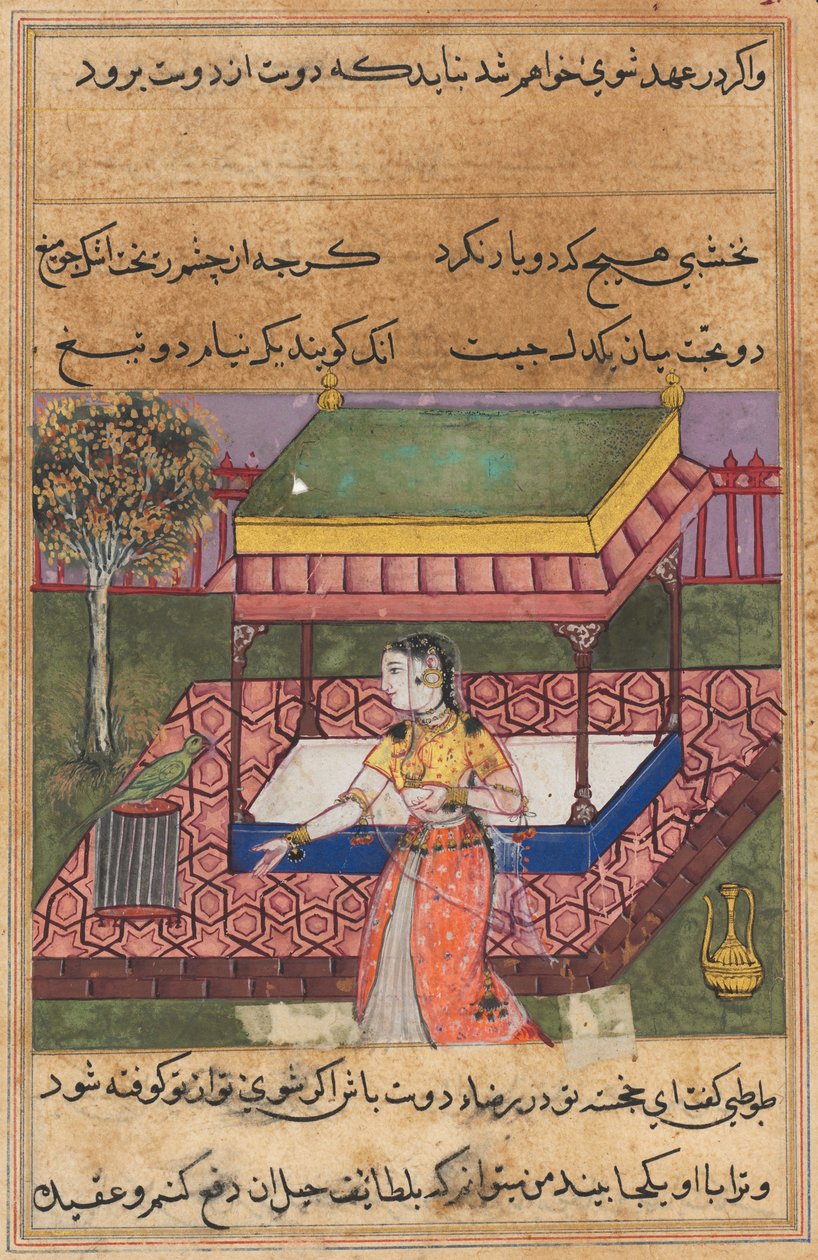 واکر در عهد شوی خواهم شد نباید که دوست از دوست برود
نخشبي هیچ که دو یار نکرد کرچه از چشم ریخت اشک چو میغ
دو محبّت میان یکدل چیست انک کویند یک نیام دو تیغ
طوطي کفت اي خجسته تو در رضاء دوست باش اکر شوي تو از تو کوفته شود
و ترا با او یکجا بیند من میتوانم که بلطائف حیل ان دفع کنم و عقیده